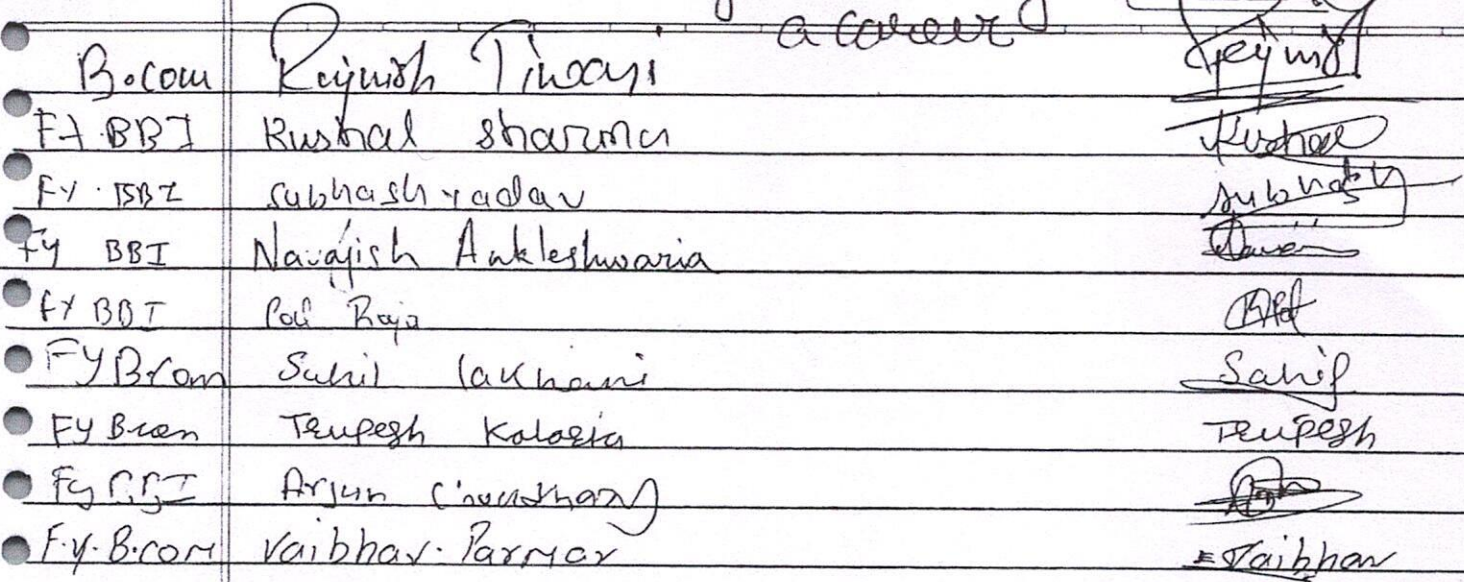 a career
B.com Rajnish Tiwari
FY.BBI Kushal Sharma Kushal
FY.BBI Subhash yadav Subhash
Fy BBI Navajish Ankleshwaria
FY BBI Raja
FYBcom Sahil lakhani Sahil
FY Bcom Trupesh Kalaria Trupesh
Fy BBI Arjun Choudhary
F.Y.B.com Vaibhav. Parmar Vaibhav